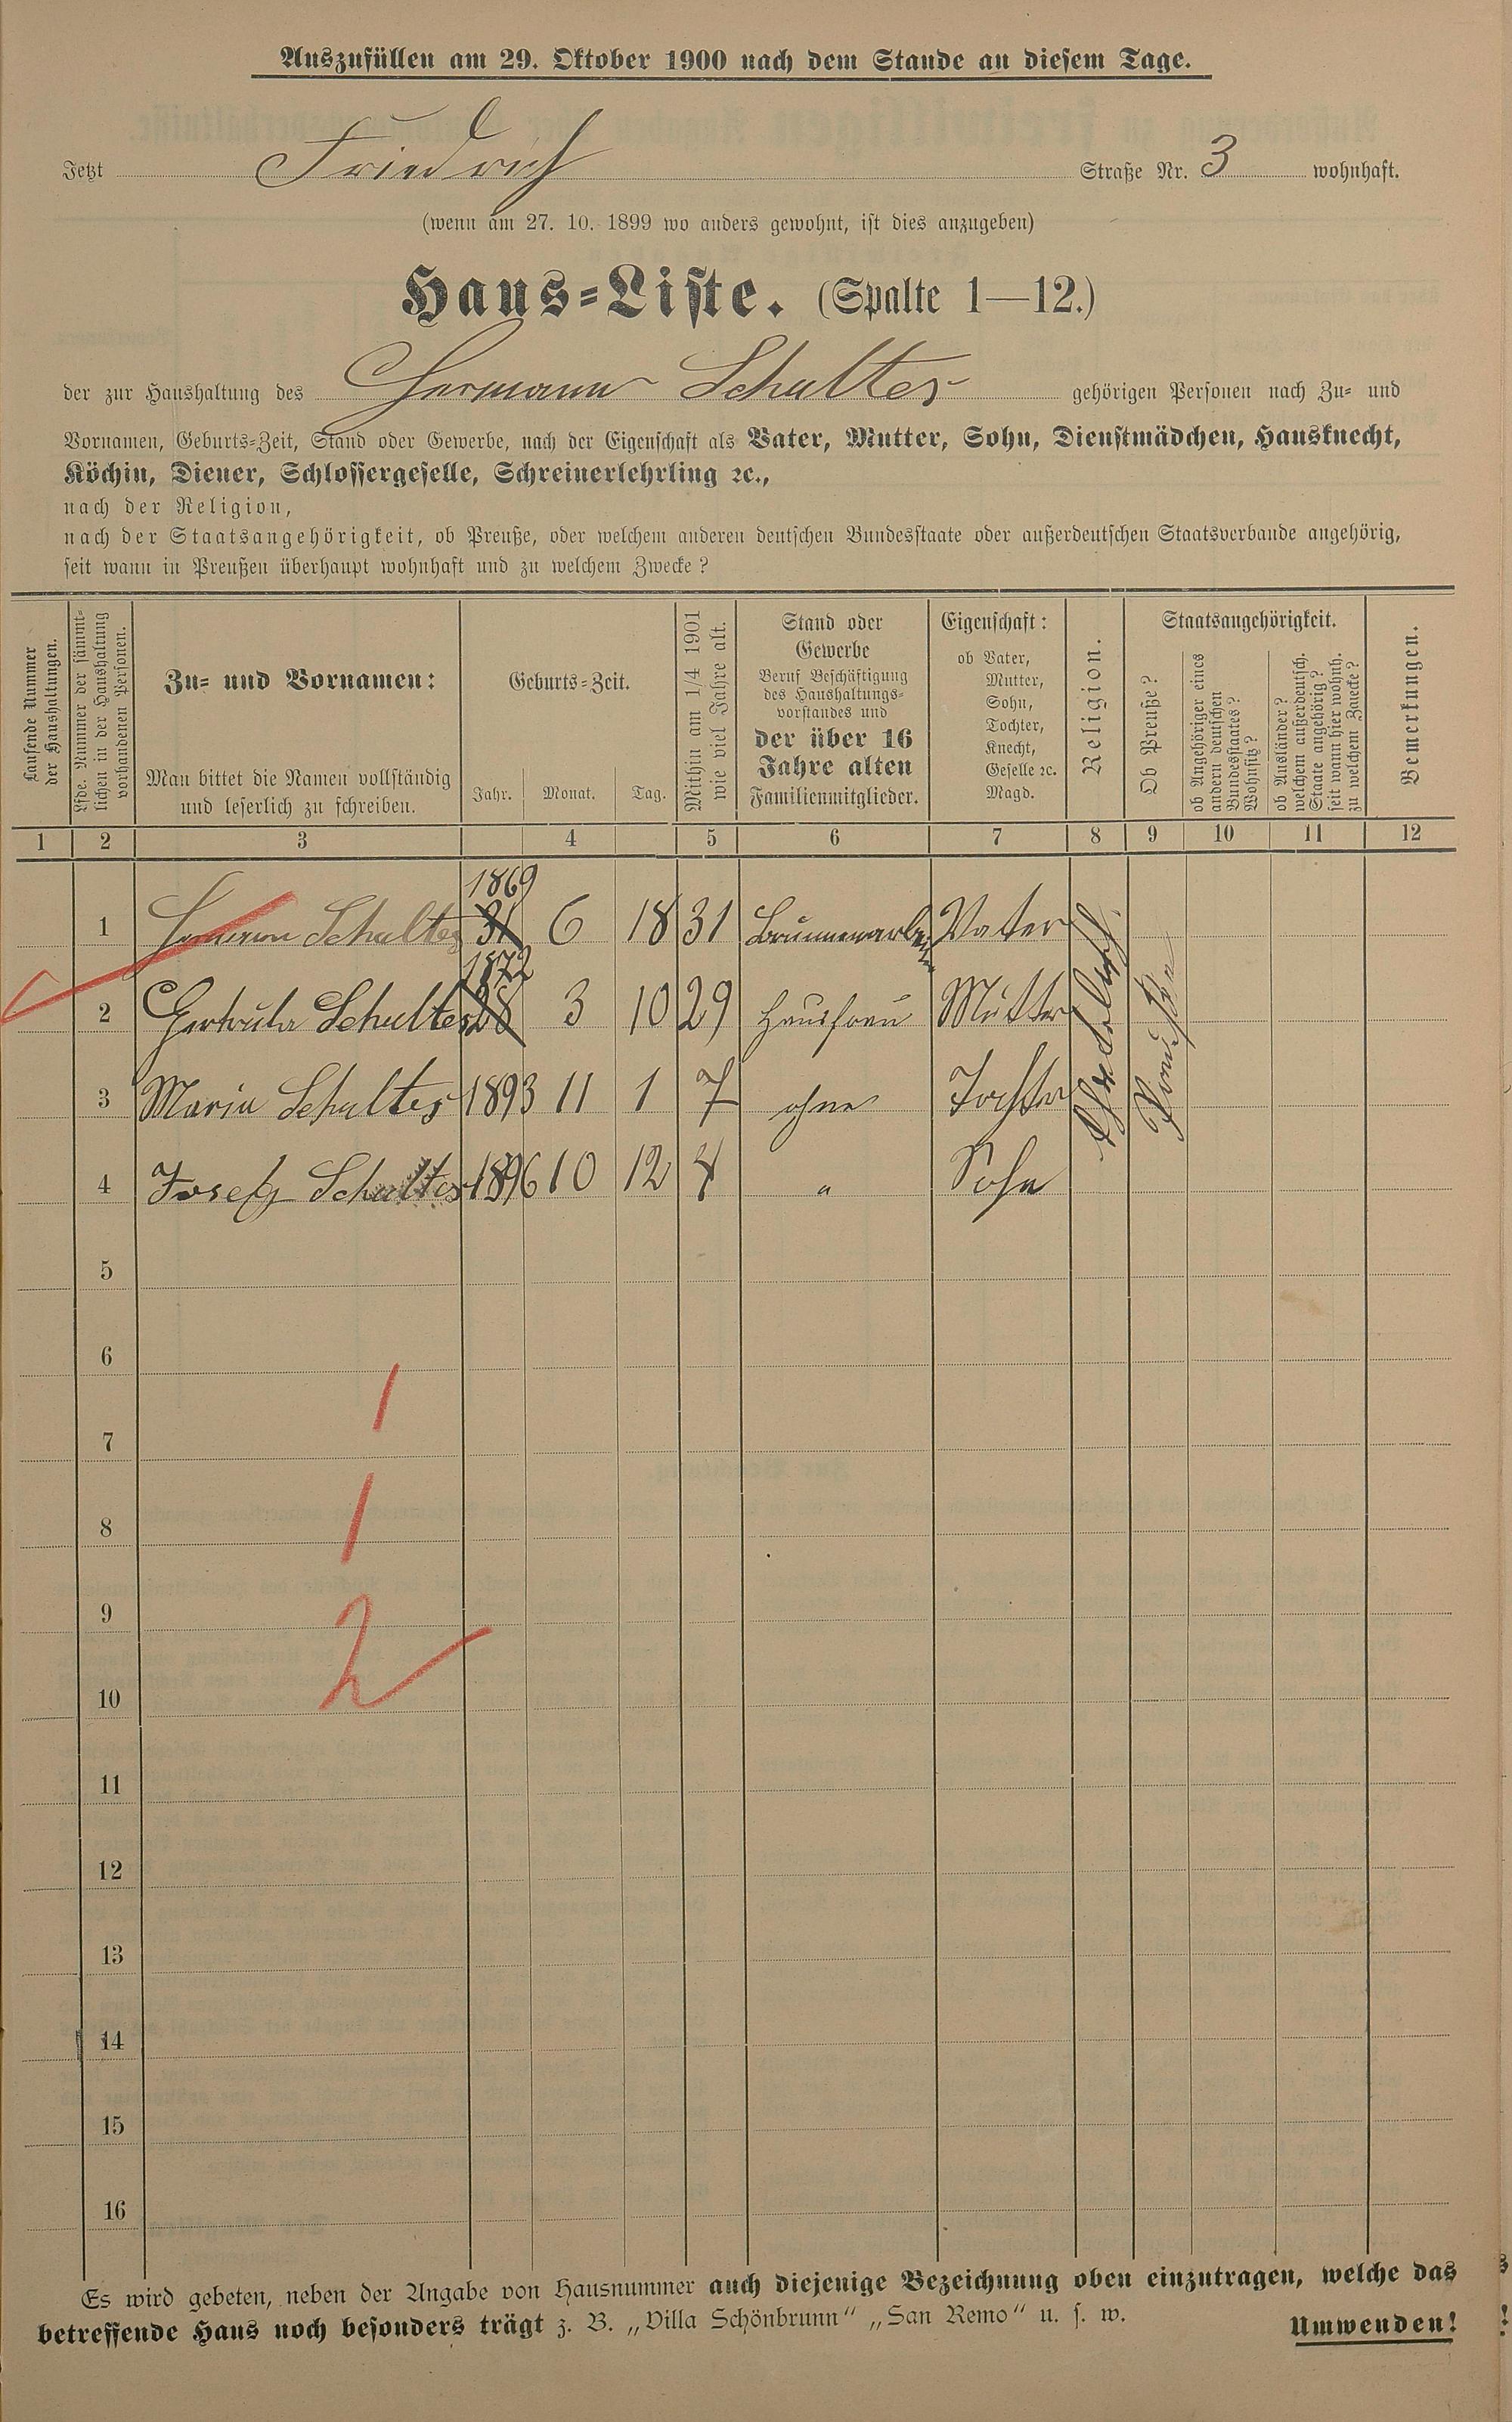 Auszufüllen am 29. Oktober 1900 nach dem Stande an diesem Tage.
Jetzt Friedrich Straße Nr. 3 wohnhaft.
(wenn am 27. 10. 1899 wo anders gewohnt, ist dies anzugeben)
Haus-Liste. (Spalte 1—12.)
der zur Haushaltung des Hermann Schultes gehörigen Personen nach Zu- und
Vornamen, Geburts-Zeit, Stand oder Gewerbe, nach der Eigenschaft als Vater, Mutter, Sohn, Dienstmädchen, Hausknecht,
Köchin, Diener, Schlossergeselle, Schreinerlehrling ꝛc.,
nach der Religion,
nach der Staatsangehörigkeit, ob Preuße, oder welchem anderen deutschen Bundesstaate oder außerdeutschen Staatsverbande angehörig,
seit wann in Preußen überhaupt wohnhaft und zu welchem Zwecke?
Laufende Nummer
der Haushaltungen.
Lfde. Nummer der sämmt-
lichen in der Haushaltung
vorhandenen Personen.
Zu- und Vornamen:
Man bittet die Namen vollständig
und leserlich zu schreiben.
Geburts-Zeit.
Jahr. Monat. Tag.
Mithin am 1/4 1901
wie viel Jahre alt.
Stand oder
Gewerbe
Beruf Beschäftigung
des Haushaltungs-
vorstandes und
der über 16
Jahre alten
Familienmitglieder.
Eigenschaft:
ob Vater,
Mutter,
Sohn,
Tochter,
Knecht,
Geselle ꝛc.
Magd.
Religion.
Staatsangehörigkeit.
Ob Preuße?
ob Angehöriger eines
andern deutschen
Bundesstaates?
Wohnsitz?
ob Ausländer?
welchem außerdeutsch.
Staate angehörig?
seit wann hier wohnh.
zu welchem Zwecke?
Bemerkungen.
1 2 3 4 5 6 7 8 9 10 11 12
1869
1 Hermann Schultes 31 6 18 31 Vater
1872
2 Gertruda Schultes 28 3 10 29 Hausfrau Mutter
3 Maria Schultes 1893 11 1 7 ohne Tochter
4 Josef Schultes 1896 10 12 4 " Sohn
5
6
1
7
1
8
9
2
10
11
12
13
14
15
16
Es wird gebeten, neben der Angabe von Hausnummer auch diejenige Bezeichnung oben einzutragen, welche das
betreffende Haus noch besonders trägt z. B. „Villa Schönbrunn“ „San Remo“ u. s. w. Umwenden!